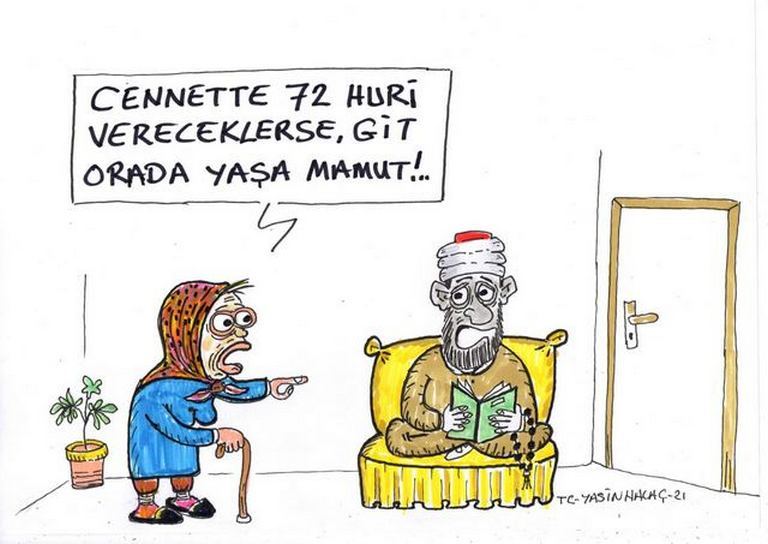 CENNETTE 72 HURİ
VERECEKLERSE, GİT
ORADA YAŞA MAMUT!..
TC-YASİN HALAÇ-21